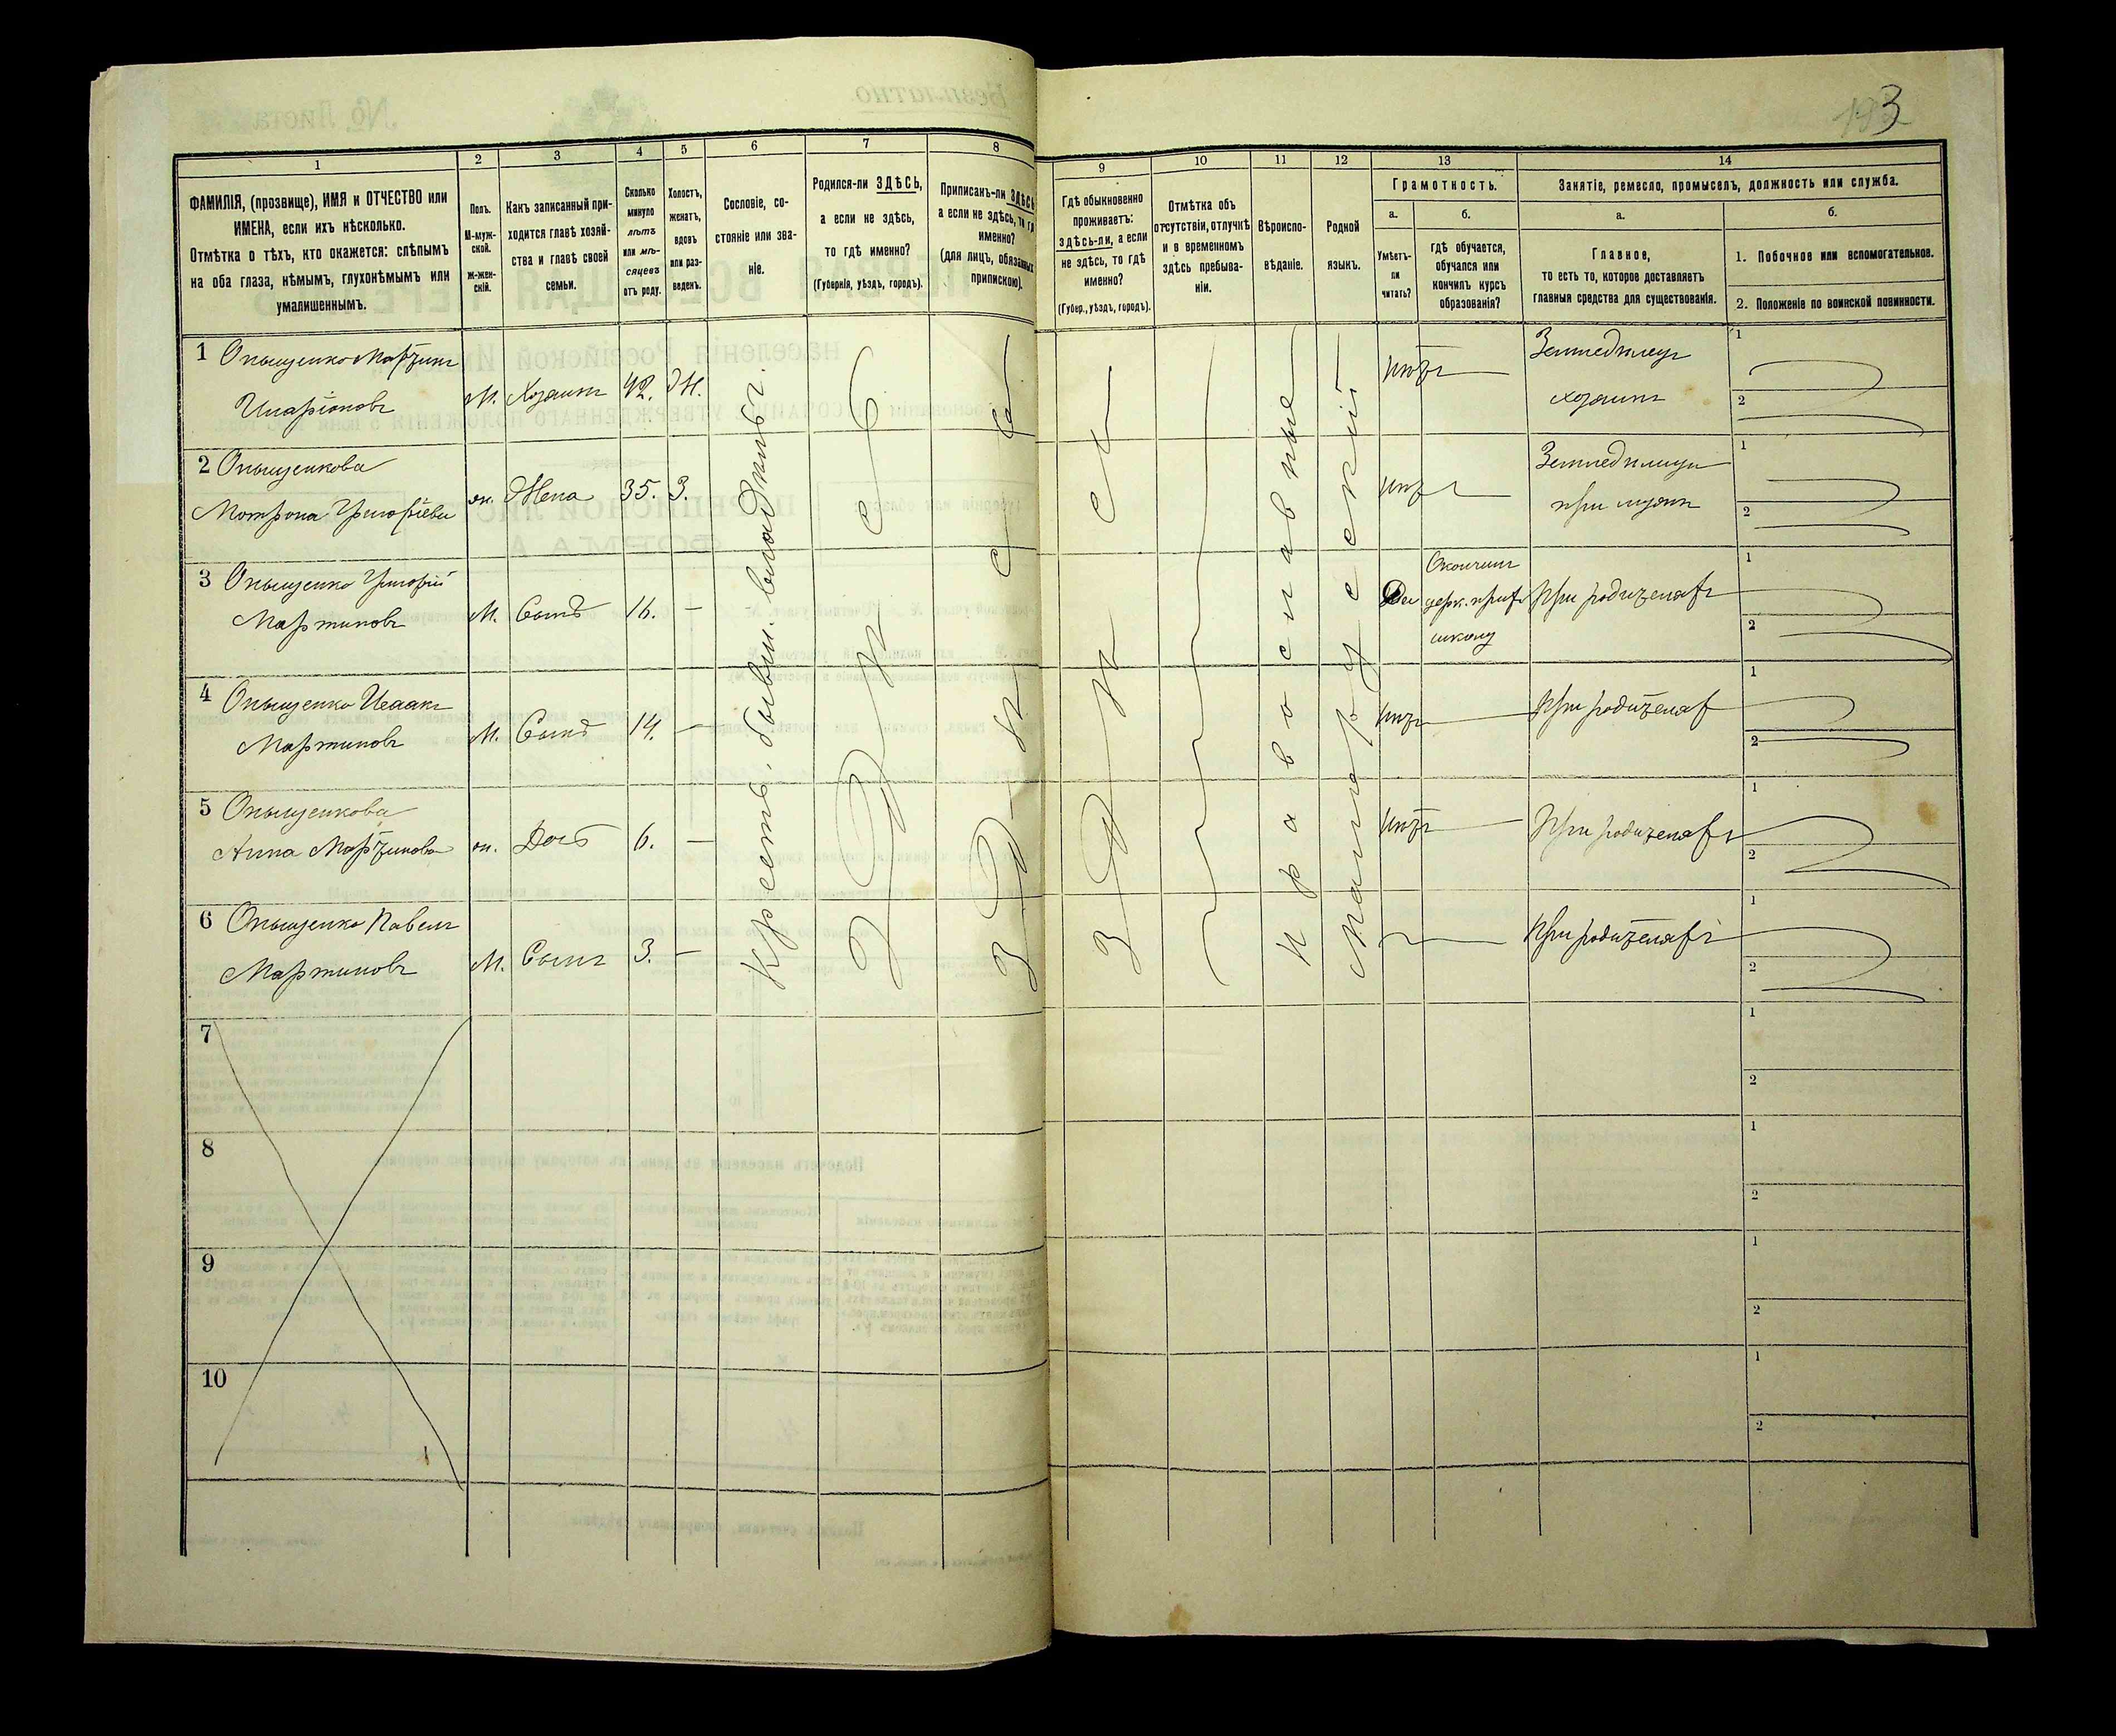 193
1 2 3 4 5 6 7 8 9 10 11 12 13 14
ФАМИЛІЯ, (прозвище), ИМЯ и ОТЧЕСТВО или
ИМЕНА, если ихъ нѣсколько.
Отмѣтка о тѣхъ, кто окажется: слѣпымъ
на оба глаза, нѣмымъ, глухонѣмымъ или
умалишеннымъ.
Полъ.
М-муж-
ской.
Ж-жен-
скій.
Какъ записанный при-
ходится главѣ хозяй-
ства и главѣ своей
семьи.
Сколько
минуло
лѣтъ
или мѣ-
сяцевъ
отъ роду.
Холостъ,
женатъ,
вдовъ
или раз-
веденъ.
Сословіе, со-
стояніе или зва-
ніе.
Родился-ли ЗДѢСЬ,
а если не здѣсь,
то гдѣ именно?
(Губернія, уѣздъ, городъ).
Приписанъ-ли ЗДѢСЬ
а если не здѣсь, то гдѣ
именно?
(для лицъ, обязанныхъ
припискою).
Гдѣ обыкновенно
проживаетъ:
здѣсь-ли, а если
не здѣсь, то гдѣ
именно?
(Губер., уѣздъ, городъ).
Отмѣтка объ
отсутствіи, отлучкѣ
и о временномъ
здѣсь пребыва-
ніи.
Вѣроиспо-
вѣданіе.
Родной
языкъ.
Грамотность.
а.
Умѣетъ-
ли
читать?
б.
гдѣ обучается,
обучался или
кончилъ курсъ
образованія?
Занятіе, ремесло, промыселъ, должность или служба.
а.
Главное,
то есть то, которое доставляетъ
главныя средства для существованія.
б.
1. Побочное или вспомогательное.
2. Положеніе по воинской повинности.
1 Онышенко Мартинъ
Иларіоновъ
М. Хозяинъ 42. Ж.
Крестъ. бывш. владѣльч.
Здѣсь
Здѣсь
Здѣсь
Православные
Малорусскій
нѣтъ
Земледѣлецъ
хозяинъ
1
2
2 Онышенкова
Мотрона Григоріева
ж. Жена 35. З.
нѣтъ
Земледѣлица
при мужѣ
1
2
3 Онышенко Григорій
Мартиновъ
М. Сынъ 16. –
Да
Окончилъ
церк. прих.
школу
При родителяхъ
1
2
4 Онышенко Исаакъ
Мартиновъ
М. Сынъ 14. –
нѣтъ
При родителях
1
2
5 Онышенкова
Анна Мартинова
ж. Дочь 6. –
нѣтъ
При родителяхъ
1
2
6 Онышенко Павелъ
Мартиновъ
М. Сынъ 3. –
При родителяхъ
1
2
7
1
2
8
1
2
9
1
2
10
1
2